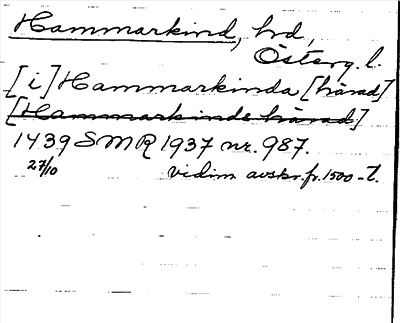 Hammarkind, hd,
Österg. l.
[i] Hammarkinda [härad]
[Hammarkinde härad]
1439 SMR 1937 nr. 987.
27/10 vidim avskr. fr. 1500-t.